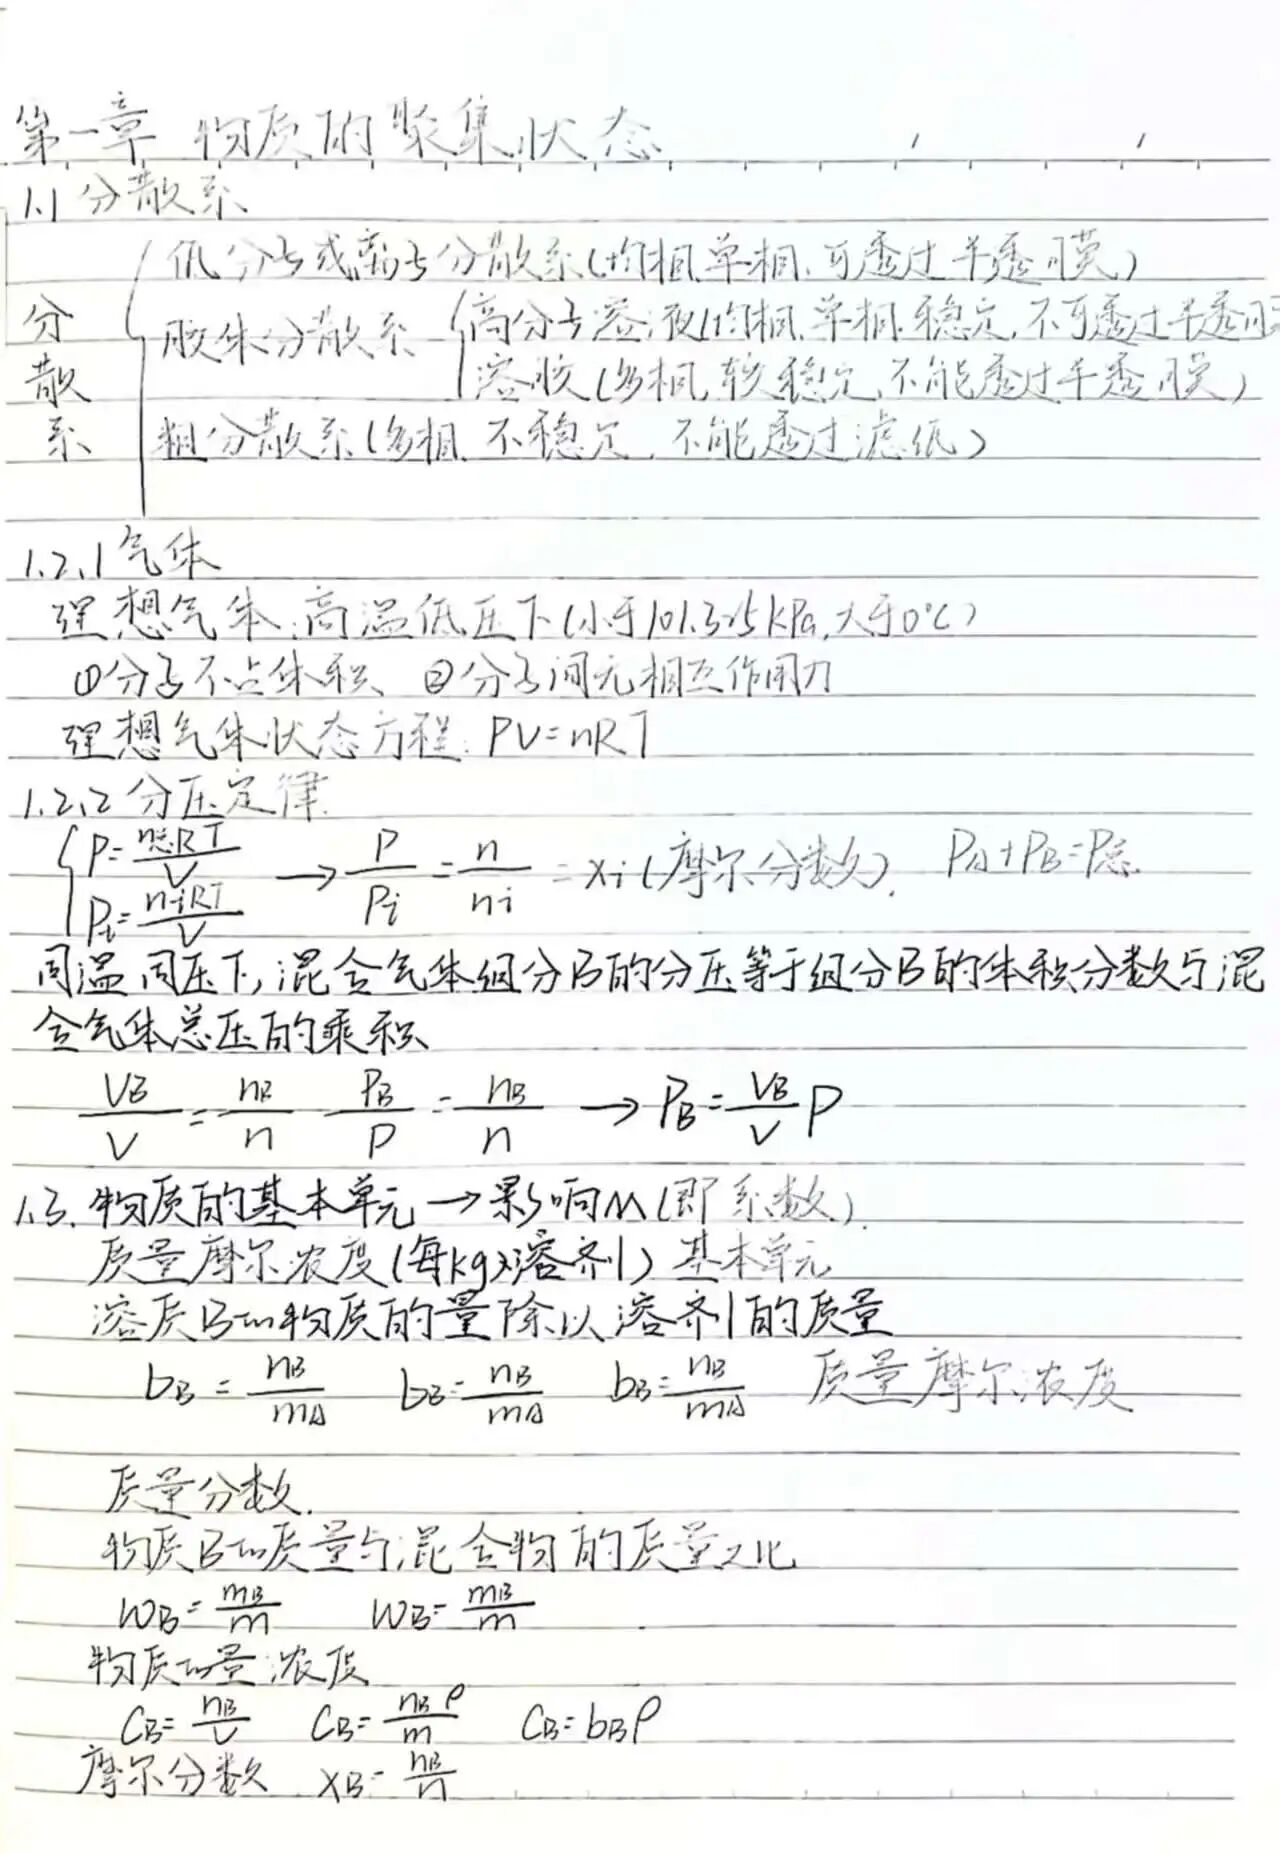 第一章 物质的聚集状态
1.1 分散系
分散系
低分子或离子分散系(均相,单相,可透过半透膜)
胶体分散系
高分子溶液(均相,单相,稳定,不可透过半透膜
溶胶(多相,较稳定,不能透过半透膜)
粗分散系(多相,不稳定,不能透过滤纸)
1.2.1 气体
理想气体:高温低压下(小于101.325kPa,大于0℃)
①分子不占体积、②分子间无相互作用力
理想气体状态方程: PV=nRT
1.2.2 分压定律.
P=n总RT/V → P/Pi = n/ni = xi(摩尔分数). PA+PB=P总.
Pi=niRT/V
同温同压下,混合气体组分B的分压等于组分B的体积分数与混
合气体总压的乘积
VB/V = nB/n PB/P = nB/n → PB = VB/V P
1.3. 物质的基本单元→影响M(即系数).
质量摩尔浓度(每kg溶剂) 基本单元
溶质B的物质的量除以溶剂的质量
bB = nB/mA bB = nB/mA bB = nB/mA 质量摩尔浓度
质量分数.
物质B的质量与混合物的质量之比
WB = mB/m WB = mB/m
物质的量浓度
CB = nB/V CB = nBρ/m CB = bBρ
摩尔分数 XB = nB/n